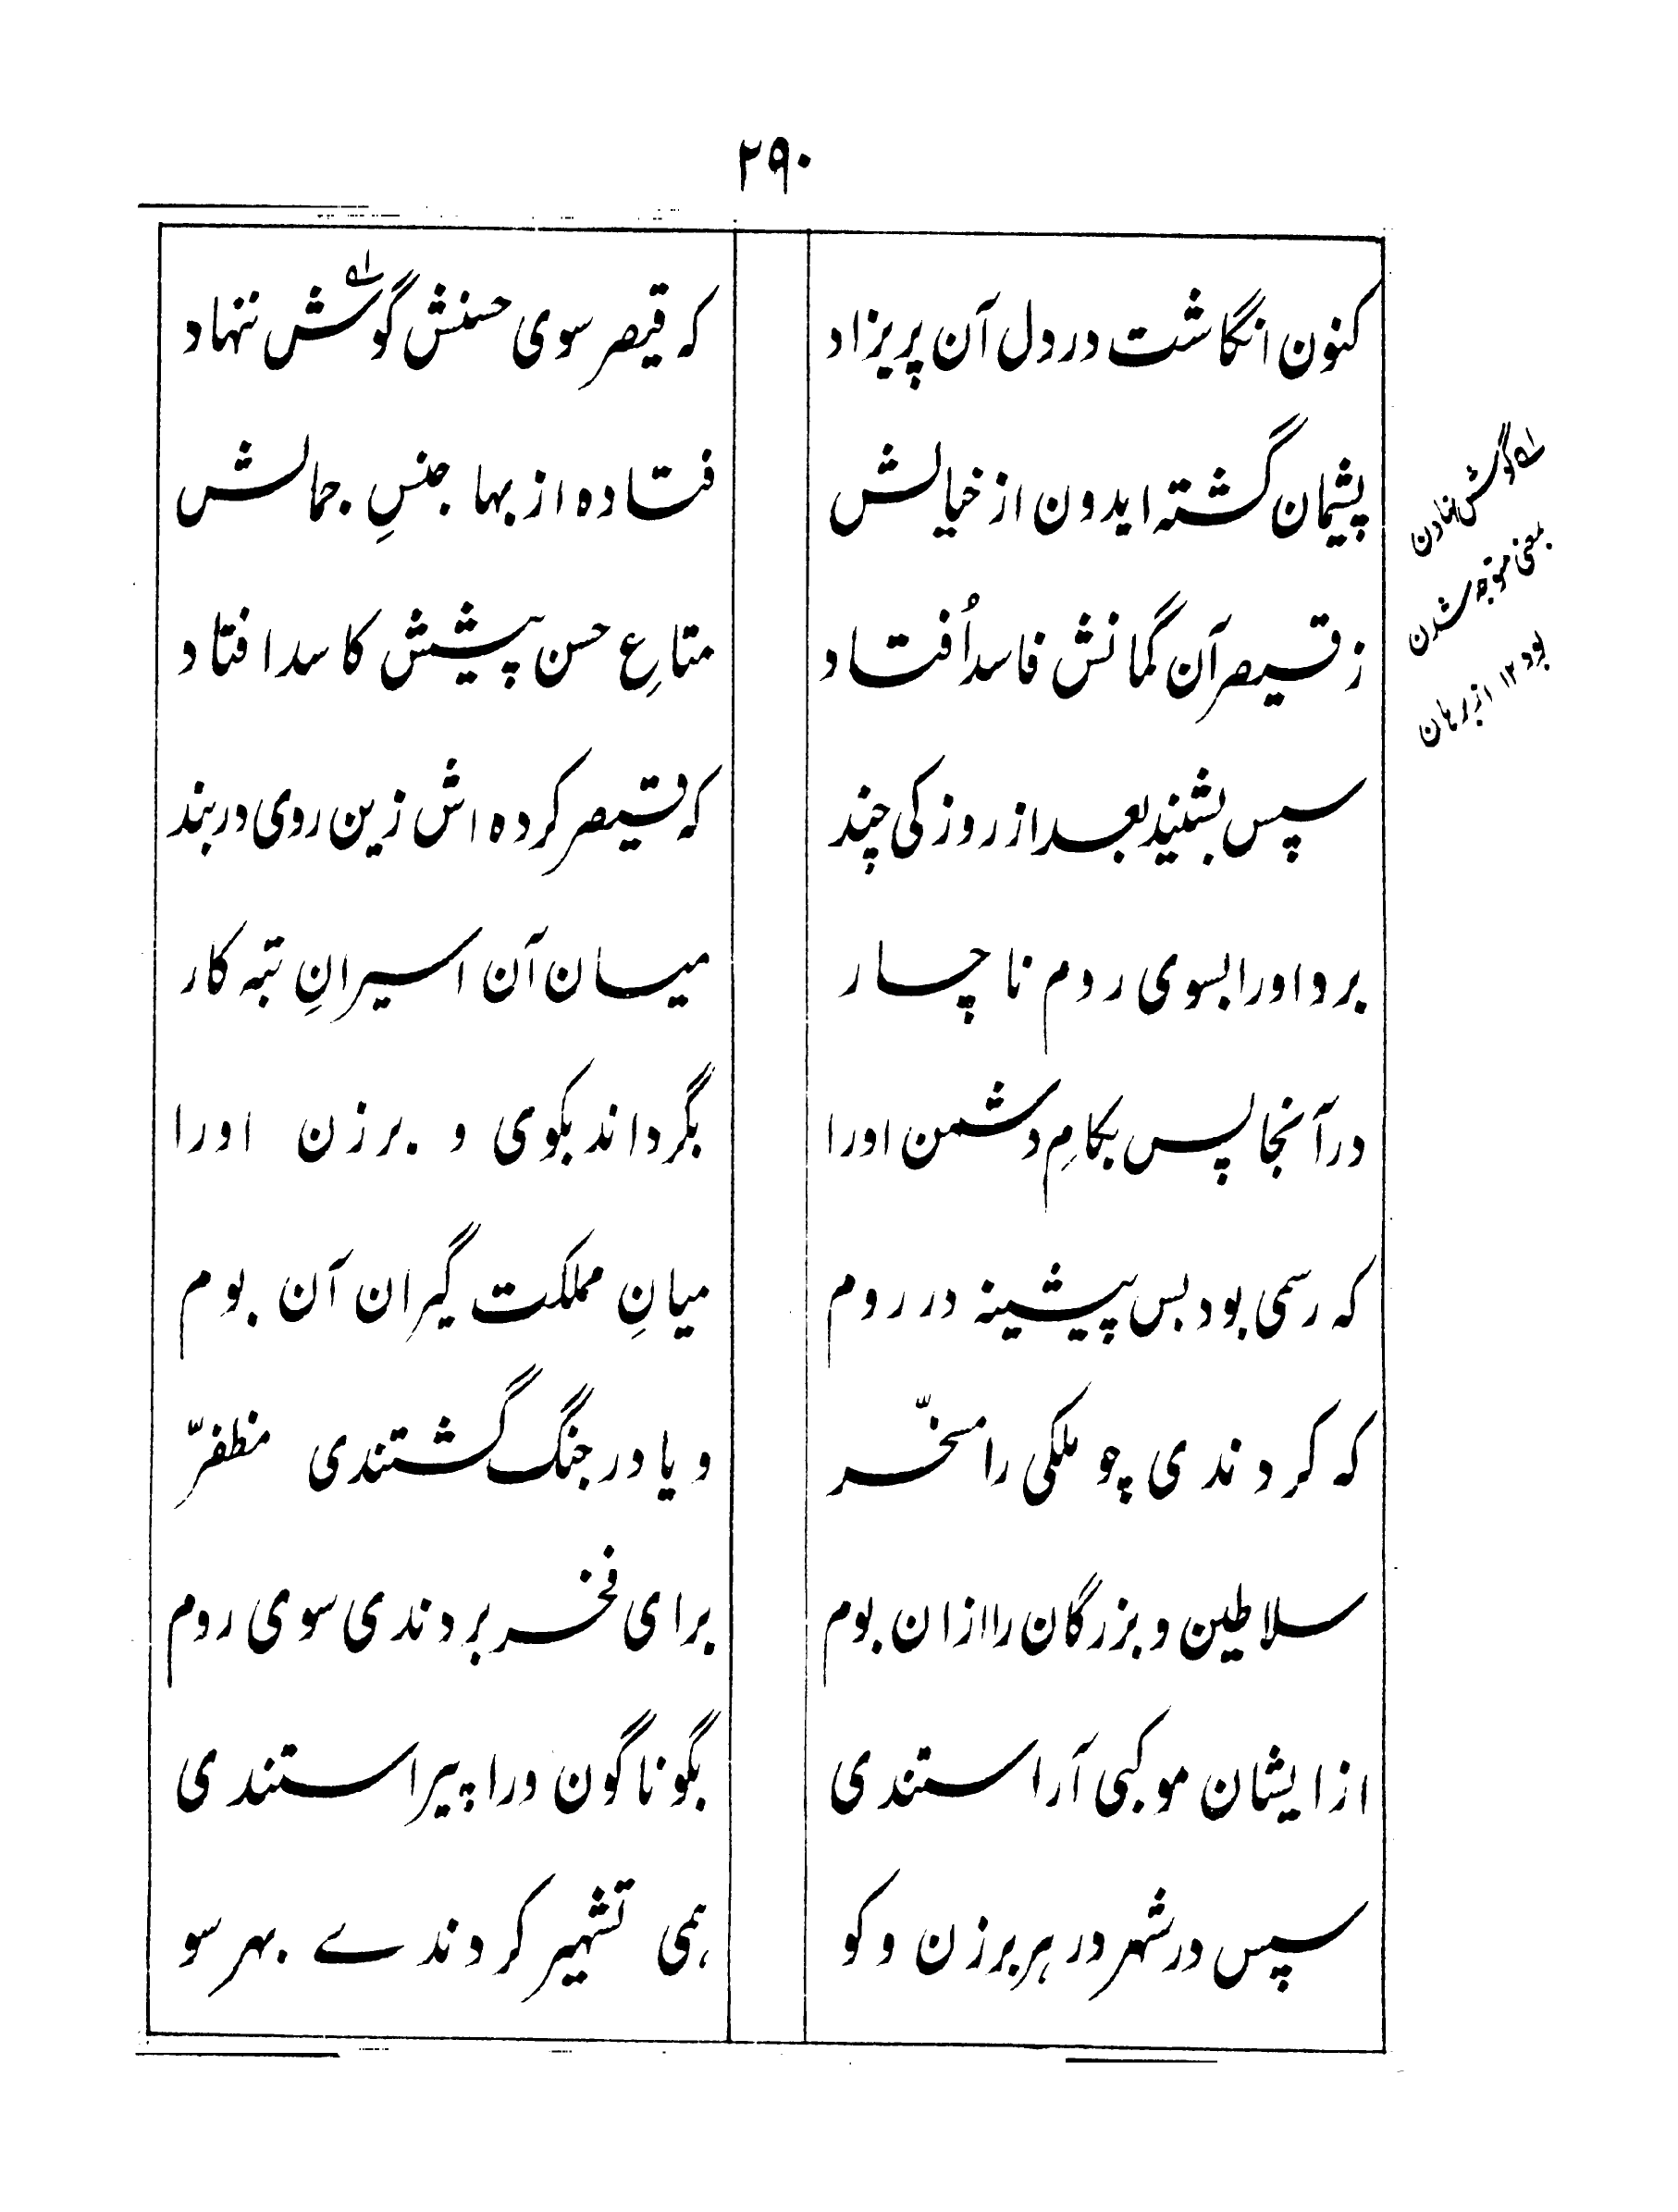 ۲۹۰
کنون انگاشت در دل آن پریزاد
که قیصر سوی حسنش گوش ننهاد
پشیمان گشته ایدون از خیالش
فتاده از بها جنسِ جمالش
ز قیصر آن گمانش فاسد اُفتاد
متاعِ حسن پیشش کاسد افتاد
سپس بشنید بعد از روزکی چند
که قیصر کرده اش زین روی دربند
برد او را بسوی روم ناچار
میان آن اسیرانِ تبه کار
در آنجا پس بکامِ دشمن اورا
بگرداند بکوی و برزن اورا
که رسمی بود بس پیشینه در روم
میانِ مملکت گیران آن بوم
که کردندی چو ملکی را مسخّر
و یا در جنگ گشتندی مظفّر
سلاطین و بزرگان را ازان بوم
برای فخر بردندی سوی روم
از ایشان موکبی آراستندی
بگوناگون ورا پیراستندی
سپس در شهر در هر برزن و کو
همی تشهیر کردندے بهر سو
له گوش نهادن
بمعنی متوجه شدن
بود ۱۲ از برهان